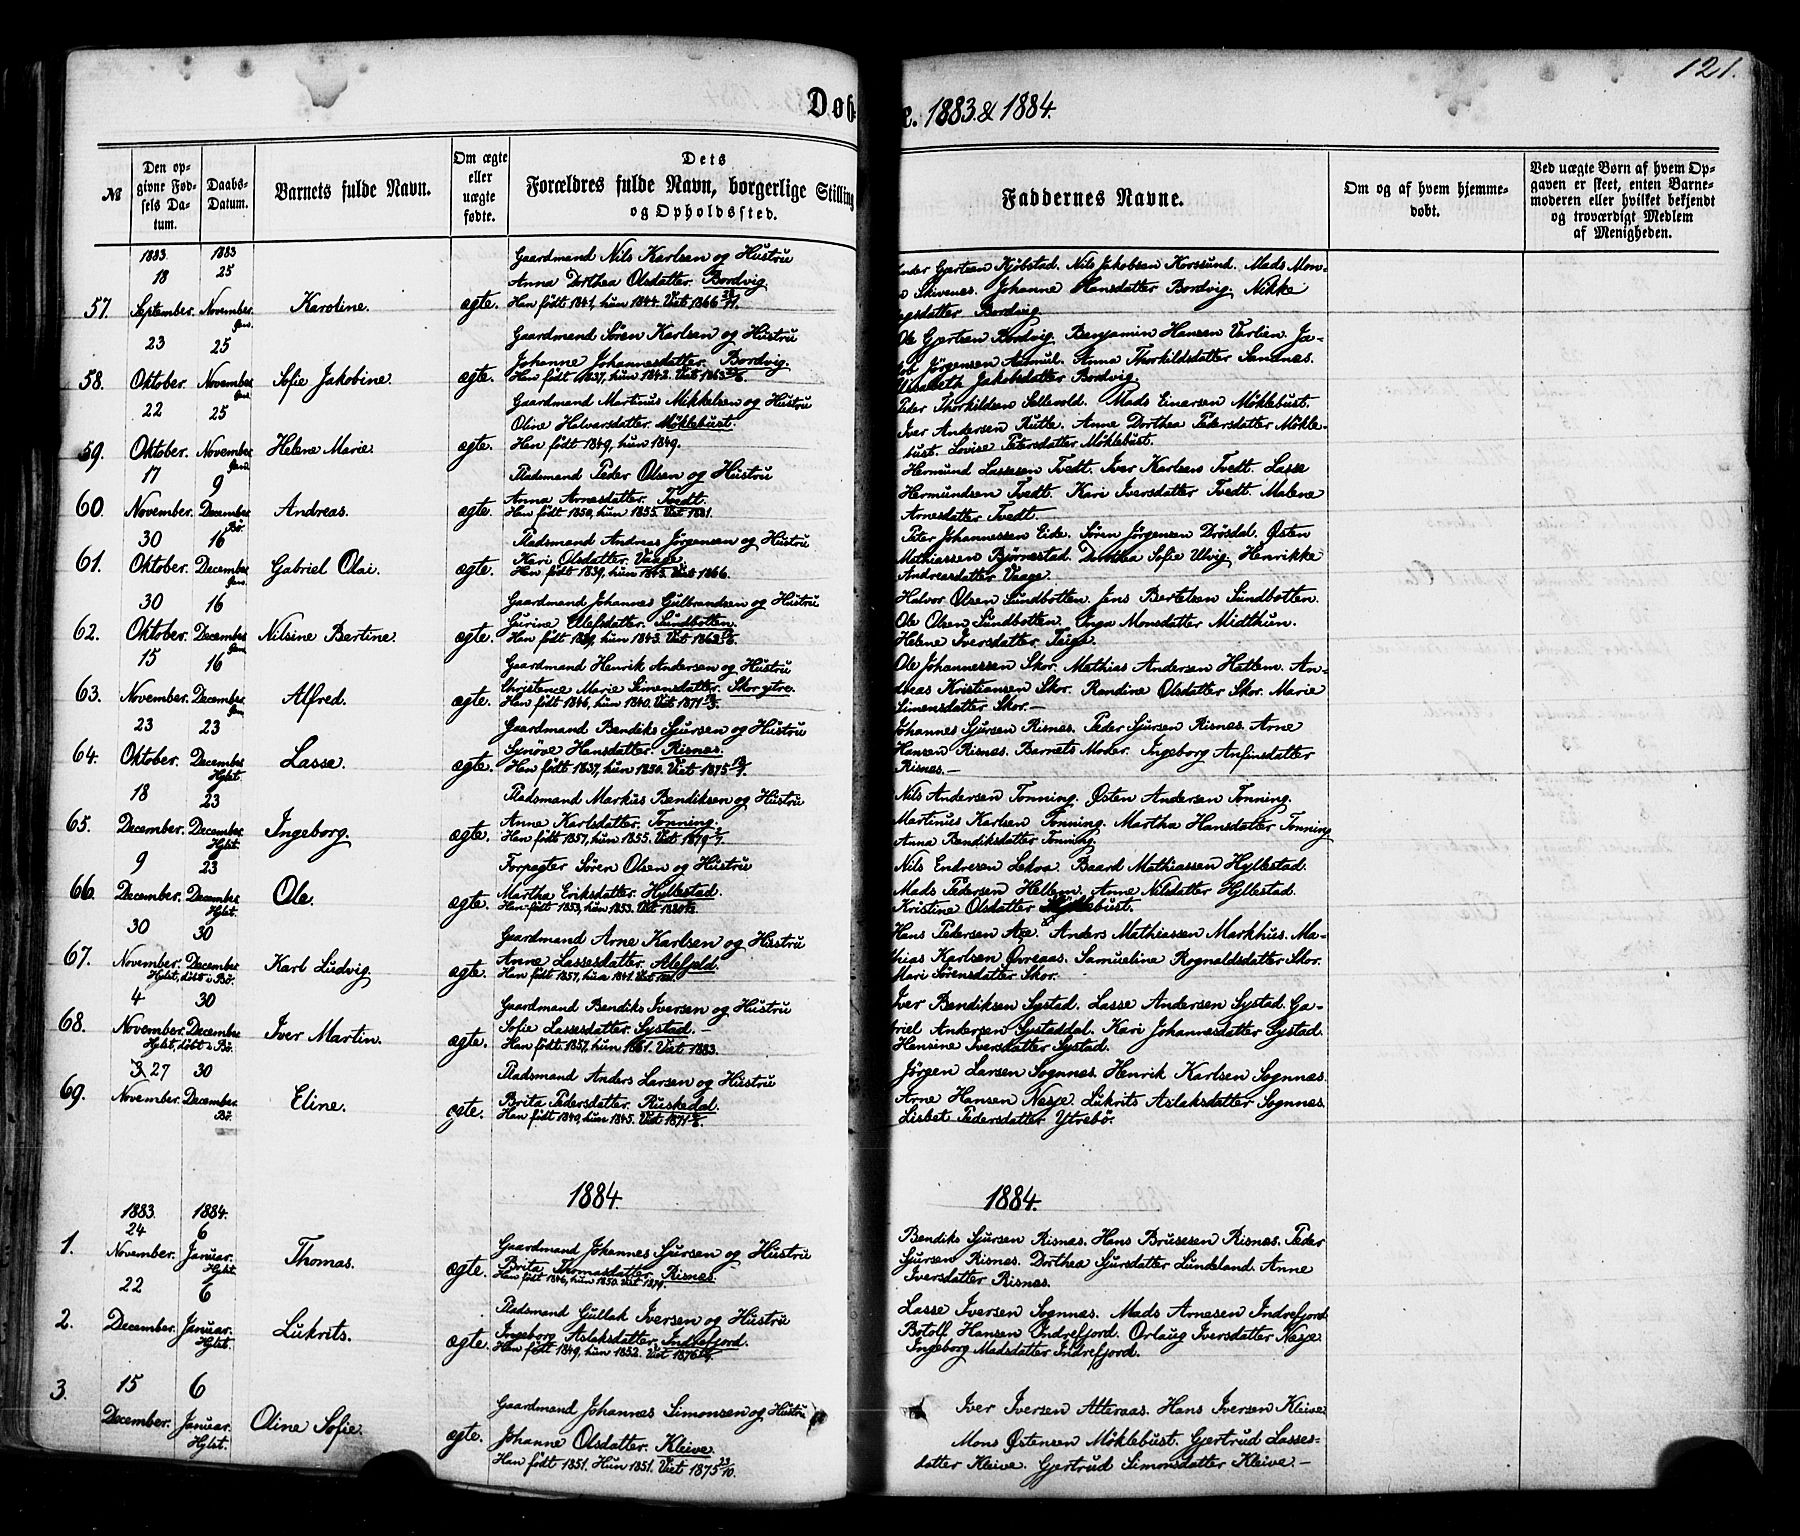 121.
Døb
e. 1883 & 1884.
№
Den op-
givne Fød-
sels Da-
tum.
Daabs-
Datum.
Barnets fulde Navn.
Om ægte
eller
uægte
fødte.
Dets
Forældres fulde Navn, borgerlige Stilling
og Opholdssted.
Faddernes Navne.
Om og af hvem hjemme-
døbt.
Ved uægte Børn af hvem Op-
gaven er skeet, enten Barne-
moderen eller hvilket bekjendt
og troværdigt Medlem
af Menigheden.
1883 1883
57. 18 September. 25 November. Karoline. ægte.
Gaardmand Nils Karlsen og Hustru
Anna Dorthea Olsdatter. Bordvig.
Han født 1841, hun 1844. Viet 1866
Gjertsen Kjøbstad. Nils Jakobsen Korssund. Mads Mon-
Skivenes. Johanne Hansdatter Bordvig. Nikke
Bordvig.
58. 23 Oktober. 25 November. Sofie Jakobine. ægte.
Gaardmand Søren Karlsen og Hustru
Johanne Johannesdatter. Bordvig.
Han født 1837, hun 1842. Viet 1863
Ole Gjertsen Bordvig. Benjamin Hansen Værlien. Ja-
Jørgensen Anna Thorkildsdatter
Jakobsdatter Bordvig.
59. 22 Oktober. 25 November. Helene Marie. ægte.
Gaardmand Martinus Mikkelsen og Hustru
Oline Halvarsdatter. Møklebust.
Han født 1849, hun 1849.
Peder Thorkildsen Sellevold. Mads Einersen Møklebust.
Iver Andersen Rutle. Anne Dorthea Pedersdatter Møkle-
bust. Lovise Petersdatter Møklebust.
60. 17 November. 9 December. Bø. Andreas. ægte.
Pladsmand Peder Olsen og Hustru
Anna Arnesdatter. Tvedt.
Han født 1850, hun 1855. Viet 1881.
Hermund Lassesen Tvedt. Iver Karlsen Tvedt. Lasse
Hermundsen Tvedt. Kari Iversdatter Tvedt. Malene
Arnesdatter Tvedt.
61. 30 Oktober. 16 December. Gabriel Olai. ægte.
Pladsmand Andreas Jørgensen og Hustru
Kari Olsdatter. Vaage.
Han født 1839, hun 1843. Viet 1866.
Peter Johannessen Eide. Søren Jørgensen Drøsdal. Østen
Mathiassen Bjørnestad. Dorthea Sofie Ulvig. Henrikke
Andreasdatter Vaage.
62. 30 Oktober. 16 December. Nilsine Bertine. ægte.
Gaardmand Johannes Gulbrandsen og Hustru
Gurine Olefsdatter. Sundbotten.
Han født 1839, hun 1843. Viet 1863
Halvor Olsen Sundbotten. Jens Bertelsen Sundbotten.
Ole Olsen Sundbotten. Inga Monsdatter Midthun.
Helene Iversdatter Teige.
63. 15 November. 16 December. Alfred. ægte.
Gaardmand Henrik Andersen og Hustru
Christence Marie Simensdatter. Skor ytre.
Han født 1846, hun 1840. Viet 1871
Ole Johannessen Skor. Mathias Andersen Hatlem. An-
dreas Kristiansen Skor. Randine Olsdatter Skor. Marie
Simensdatter Skor.—
64. 23 Oktober. 23 December. Hylst. Lasse. ægte.
Gaardmand Bendiks Sjursen og Hustru
Synøve Hansdatter. Risnes.
Han født 1837, hun 1850. Viet 1875
Johannes Sjursen Risnes. Peder Sjursen Risnes. Arne
Hansen Risnes. Barnets Moder. Ingeborg Anfinsdatter
Risnes.—
65. 18 December. 23 December. Hylst. Ingeborg. ægte.
Pladsmand Markus Bendiksen og Hustru
Anne Karlsdatter. Tonning.
Han født 1857, hun 1855. Viet 1879
Nils Andersen Tonning. Østen Andersen Tonning.
Martinus Karlsen Tonning. Martha Hansdatter Tonning
Anna Bendiksdatter Tonning.
66. 9 December. 23 December. Hylst. Ole. ægte.
Forpagter Søren Olsen og Hustru
Martha Eriksdatter. Hyllestad.
Han født 1853, hun 1853. Viet 1880
Nils Endresen Lekva. Baard Mathiassen Hyllestad.
Mads Pedersen Hellem. Anne Nilsdatter Hyllestad.
Kristine Olsdatter Møklebust.
67. 30 November. Hylst, døbt i Bø. 30 December. Karl Ludvig. ægte.
Gaardmand Arne Karlsen og Hustru
Anne Lassesdatter. Aleføld.
Han født 1857, hun 1841. Viet
Hans Pedersen Aae. Anders Mathiassen Markhus. Ma-
thias Karlsen Øvreaas. Samueline Rognaldsdatter Skor.
Mari Sørensdatter Skor.
68. 4 November. Hylst, døbt i Bø. 30 December. Iver Martin. ægte.
Gaardmand Bendiks Iversen og Hustru
Sofie Lassesdatter. Systad.—
Han født 1857, hun 1861. Viet 1883.
Iver Bendiksen Systad. Lasse Andersen Systad. Ga-
briel Andersen Systaddal. Kari Johannesdatter Systad.
Hansine Iversdatter Systad.
69. 27 November. 30 December. Bø. Eline. ægte.
Pladsmand Anders Larsen og Hustru
Brita Pedersdatter. Ruskedal.
Han født 1840, hun 1845. Viet 1871
Jørgen Larsen Sognnes. Henrik Karlsen Sognnes.
Arne Hansen Nesje. Lukrits Aslaksdatter Sognnes.
Lisbet Pedersdatter Ytrebø.
1884. 1884.
1883. 1884.
1. 24 November. 6 Januar. Hylst. Thomas. ægte.
Gaardmand Johannes Sjursen og Hustru
Brita Thomasdatter. Risnes.
Han født 1846, hun 1850. Viet 1879.
Bendiks Sjursen Risnes. Hans Brusesen Risnes. Peder
Sjursen Risnes. Dorthea Sjursdatter Lundeland. Anne
Iversdatter Risnes.
2. 22 December. 6 Januar. Hylst. Lukrits. ægte.
Pladsmand Gullak Iversen og Hustru
Ingeborg Aslaksdatter. Indrefjord.
Han født 1849, hun 1852. Viet 1876
Lasse Iversen Sognnes. Mads Arnesen Indrefjord
Botolf Hansen Indrefjord. Orlaug Iversdatter Nesje
Ingeborg Madsdatter Indrefjord.
3. 15 December. 6 Januar. Hylst. Oline Sofie. ægte.
Gaardmand Johannes Simonsen og Hustru
Johanne Olsdatter. Kleive.
Han født 1851. Hun 1851. Viet 1875 23/10.
Iver Iversen Atteraas. Hans Iversen Kleive.
Mons Østensen Møklebust. Gjertrud Lasses-
datter Kleive. Gjertrud Simonsdatter Kleive.—